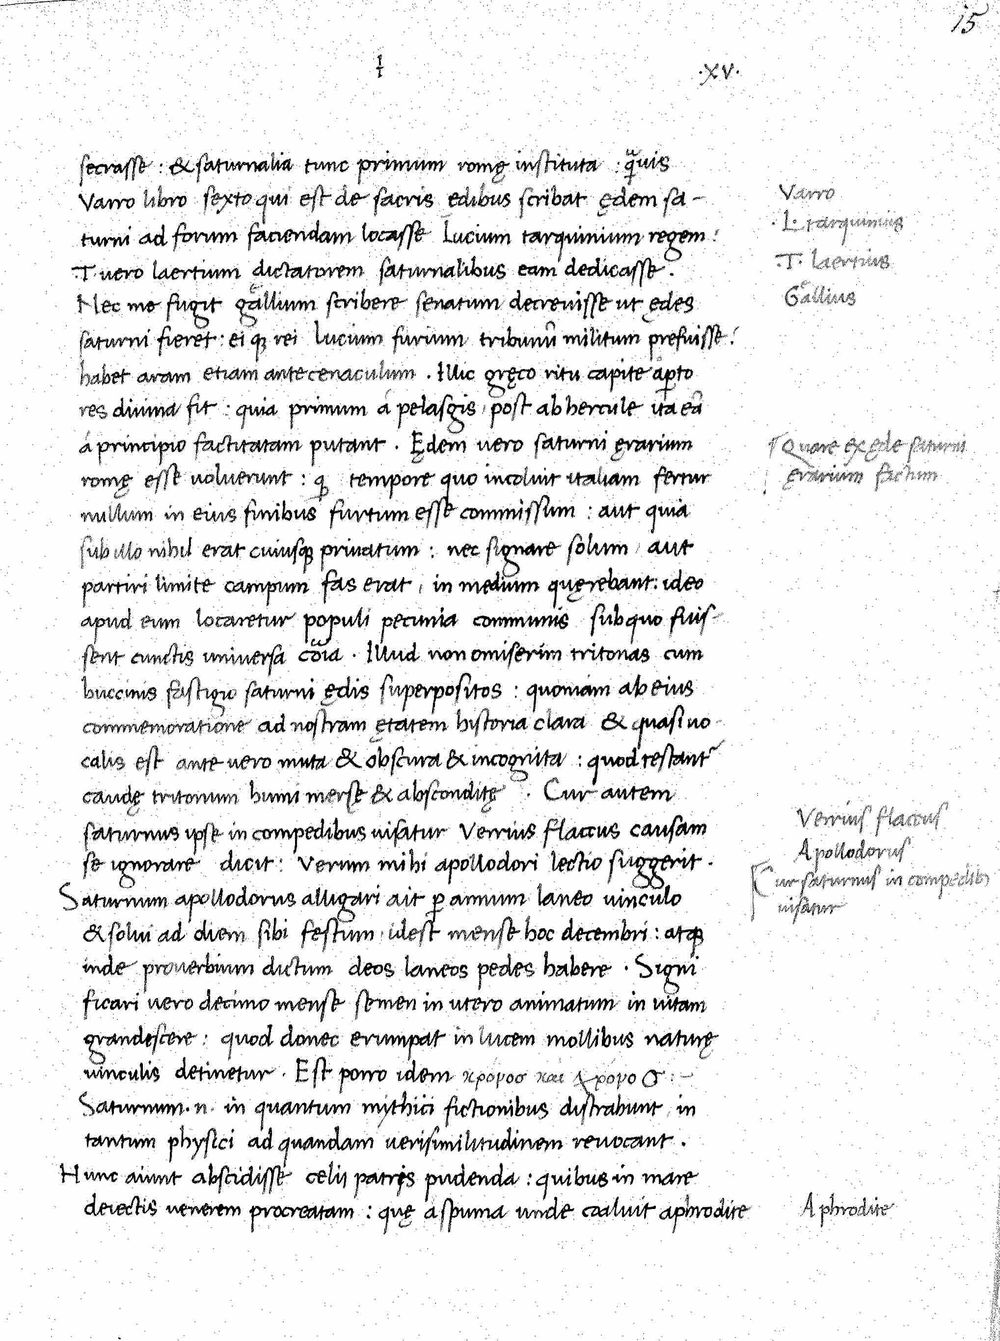 15
·XV·
secrasse : & saturnalia tunc primum romę instituta : quis
Varro libro sexto qui est de sacris edibus scribat ędem sa-
turni ad forum faciendam locasse Lucium tarquinium regem :
T. uero laertium dictatorem saturnalibus eam dedicasse .
Nec me fugit gallium scribere senatum decreuisse ut ędes
saturni fieret : ei q; rei lucium furium tribunū militum prefuisse :
habet aram etiam ante cenaculum . Illic gręco ritu capite aꝑto
res diuina fit : quia primum á pelasgis , post ab hercule ita eā
á principio factitatam putant . Ędem uero saturni ęrarium
romę esse uoluerunt : ꝙ tempore quo incoluit italiam fertur
nullum in eius finibus furtum esse commissum : aut quia
sub illo nihil erat cuiusq; priuatum : nec signare solum , aut
partiri limite campum fas erat , in medium quęrebant : ideo
apud eum locaretur populi pecunia communis sub quo fuis-
sent cunctis uniuersa cōia . Illud non omiserim tritonas cum
buccinis fastigio saturni ędis superpositos : quoniam ab eius
commemoratione ad nostram ętatem historia clara & quasi uo-
calis est ante uero muta & obscura & incognita : quod testant᷑
caudę tritonum humi mersę & absconditę . Cur autem
saturnus ipse in compedibus uisatur Verrius flaccus causam
se ignorare dicit : Verum mihi apollodori lectio suggerit .
Saturnum apollodorus alligari ait ꝑ annum laneo uinculo
& solui ad diem sibi festum , idest mense hoc decembri : atq;
inde prouerbium dictum deos laneos pedes habere . Signi
ficari uero decimo mense semen in utero animatum in uitam
grandescere : quod donec erumpat in lucem mollibus naturę
uinculis detinetur . Est porro idem κρόνοσ και χρόνοσ :-
Saturnum .n. in quantum mythici fictionibus distrahunt , in
tantum physici ad quandam uerisimilitudinem reuocant .
Hunc aiunt abscidisse celii patris pudenda : quibus in mare
deiectis uenerem procreatam : quę a spuma unde coaluit aphrodite
Varro
·L· tarquinius
·T· laertius
Gallius
Quare ex ęde saturni
ęrarium factum
Verrius flaccus
Apollodorus
Cur saturnus in compedib;
uisatur
Aphrodite